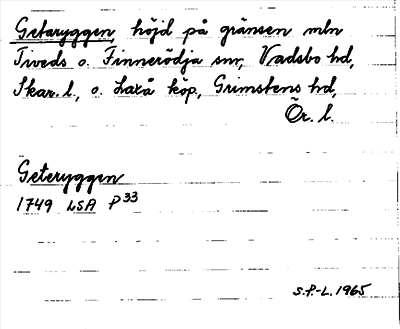 Getaryggen, höjd på gränsen mln
Tiveds o. Finnerödja snr, Vadsbo hd,
Skar. l., o. Laxå köp, Grimstens hd,
Ör. l.
Geteryggen
1749 LSA P33
S.P.-L. 1965